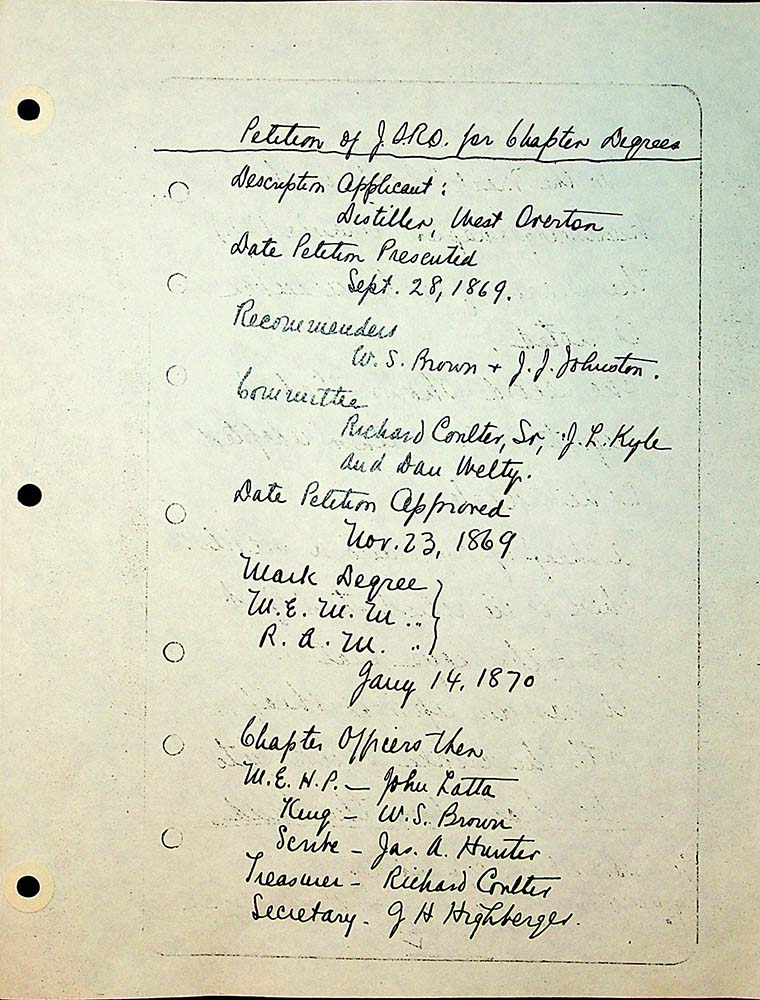 Petition of J.O.R.O. for Chapter Degrees
Description Applicant:
Distiller, West Overton
Date Petition Presented
Sept. 28, 1869.
Recommenders
W. S. Brown + J. J. Johnston.
Committee
Richard Coulter, Sr, J. L. Kyle
and Dan Welty.
Date Petition Approved
Nov. 23, 1869
Mark Degree }
M. E. M. M .. }
R. A. M. .. }
Jany 14, 1870
Chapter Officers then
M.E.H.P. — John Latta
King – W.S. Brown
Scribe – Jas. A. Hunter
Treasurer - Richard Coulter
Secretary - G H Highberger.